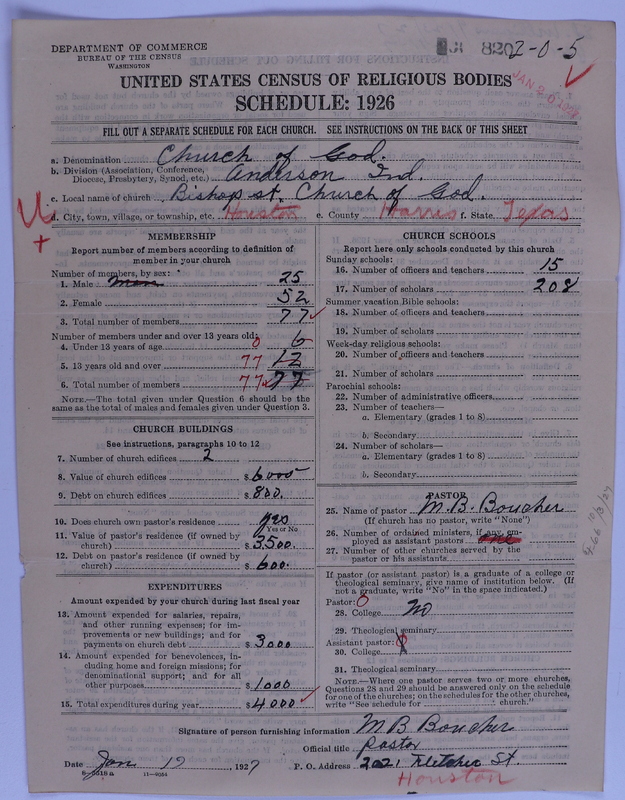 DEPARTMENT OF COMMERCE
BUREAU OF THE CENSUS
WASHINGTON
8202-0-5
JAN 20
UNITED STATES CENSUS OF RELIGIOUS BODIES
SCHEDULE: 1926
FILL OUT A SEPARATE SCHEDULE FOR EACH CHURCH. SEE INSTRUCTIONS ON THE BACK OF THIS SHEET
a. Denomination Church of God.
b. Division (Association, Conference, Diocese, Presbytery, Synod, etc.) Anderson Ind.
c. Local name of church Bishop st. Church of God.
d. City, town, village, or township, etc. Houston e. County Harris f. State Texas
MEMBERSHIP
Report number of members according to definition of
member in your church
Number of members, by sex:
1. Male 25
2. Female 52
3. Total number of members 77
Number of members under and over 13 years old:
4. Under 13 years of age 0 6
5. 13 years old and over 77 12
6. Total number of members 77 77
NOTE.—The total given under Question 6 should be
same as the total of males and females given under Question 3.
CHURCH BUILDINGS
See instructions, paragraphs 10 to 12
7. Number of church edifices 2
8. Value of church edifices $ 6000
9. Debt on church edifices $ 800.
10. Does church own pastor's residence yes
Yes or No
11. Value of pastor's residence (if owned by
church) $ 3500.
12. Debt on pastor's residence (if owned by
church) $ 600.
EXPENDITURES
Amount expended by your church during last fiscal year
13. Amount expended for salaries, repairs,
and other running expenses; for im-
provements or new buildings; and for
payments on church debt $ 3000
14. Amount expended for benevolences, in-
cluding home and foreign missions; for
denominational support; and for all
other purposes $ 1000
15. Total expenditures during year $ 4000
CHURCH SCHOOLS
Report here only schools conducted by this church
Sunday schools:
16. Number of officers and teachers 15
17. Number of scholars 208
Summer vacation Bible schools:
18. Number of officers and teachers
19. Number of scholars
Week-day religious schools:
20. Number of officers and teachers
21. Number of scholars
Parochial schools:
22. Number of administrative officers
23. Number of teachers—
a. Elementary (grades 1 to 8)
b. Secondary
24. Number of scholars—
a. Elementary (grades 1 to 8)
b. Secondary
PASTOR
25. Name of pastor M. B. Boucher
(If church has no pastor, write "None")
26. Number of ordained ministers, if any, em-
ployed as assistant pastors
27. Number of other churches served by the
pastor or his assistants
If pastor (or assistant pastor) is a graduate of a college or
theological seminary, give name of institution below. (If
not a graduate, write "No" in the space indicated.)
Pastor: 0
28. College No
29. Theological seminary
Assistant pastor: 0
30. College
31. Theological seminary
NOTE.—Where one pastor serves two or more churches,
Questions 28 and 29 should be answered only on the schedule
for one of the churches; on the schedules for the other churches,
write "See schedule for church."
Signature of person furnishing information M B Boucher
Official title Pastor
Date Jan 19 1927 P. O. Address 2021 Fletcher St
Houston
8-5518a 11-9054